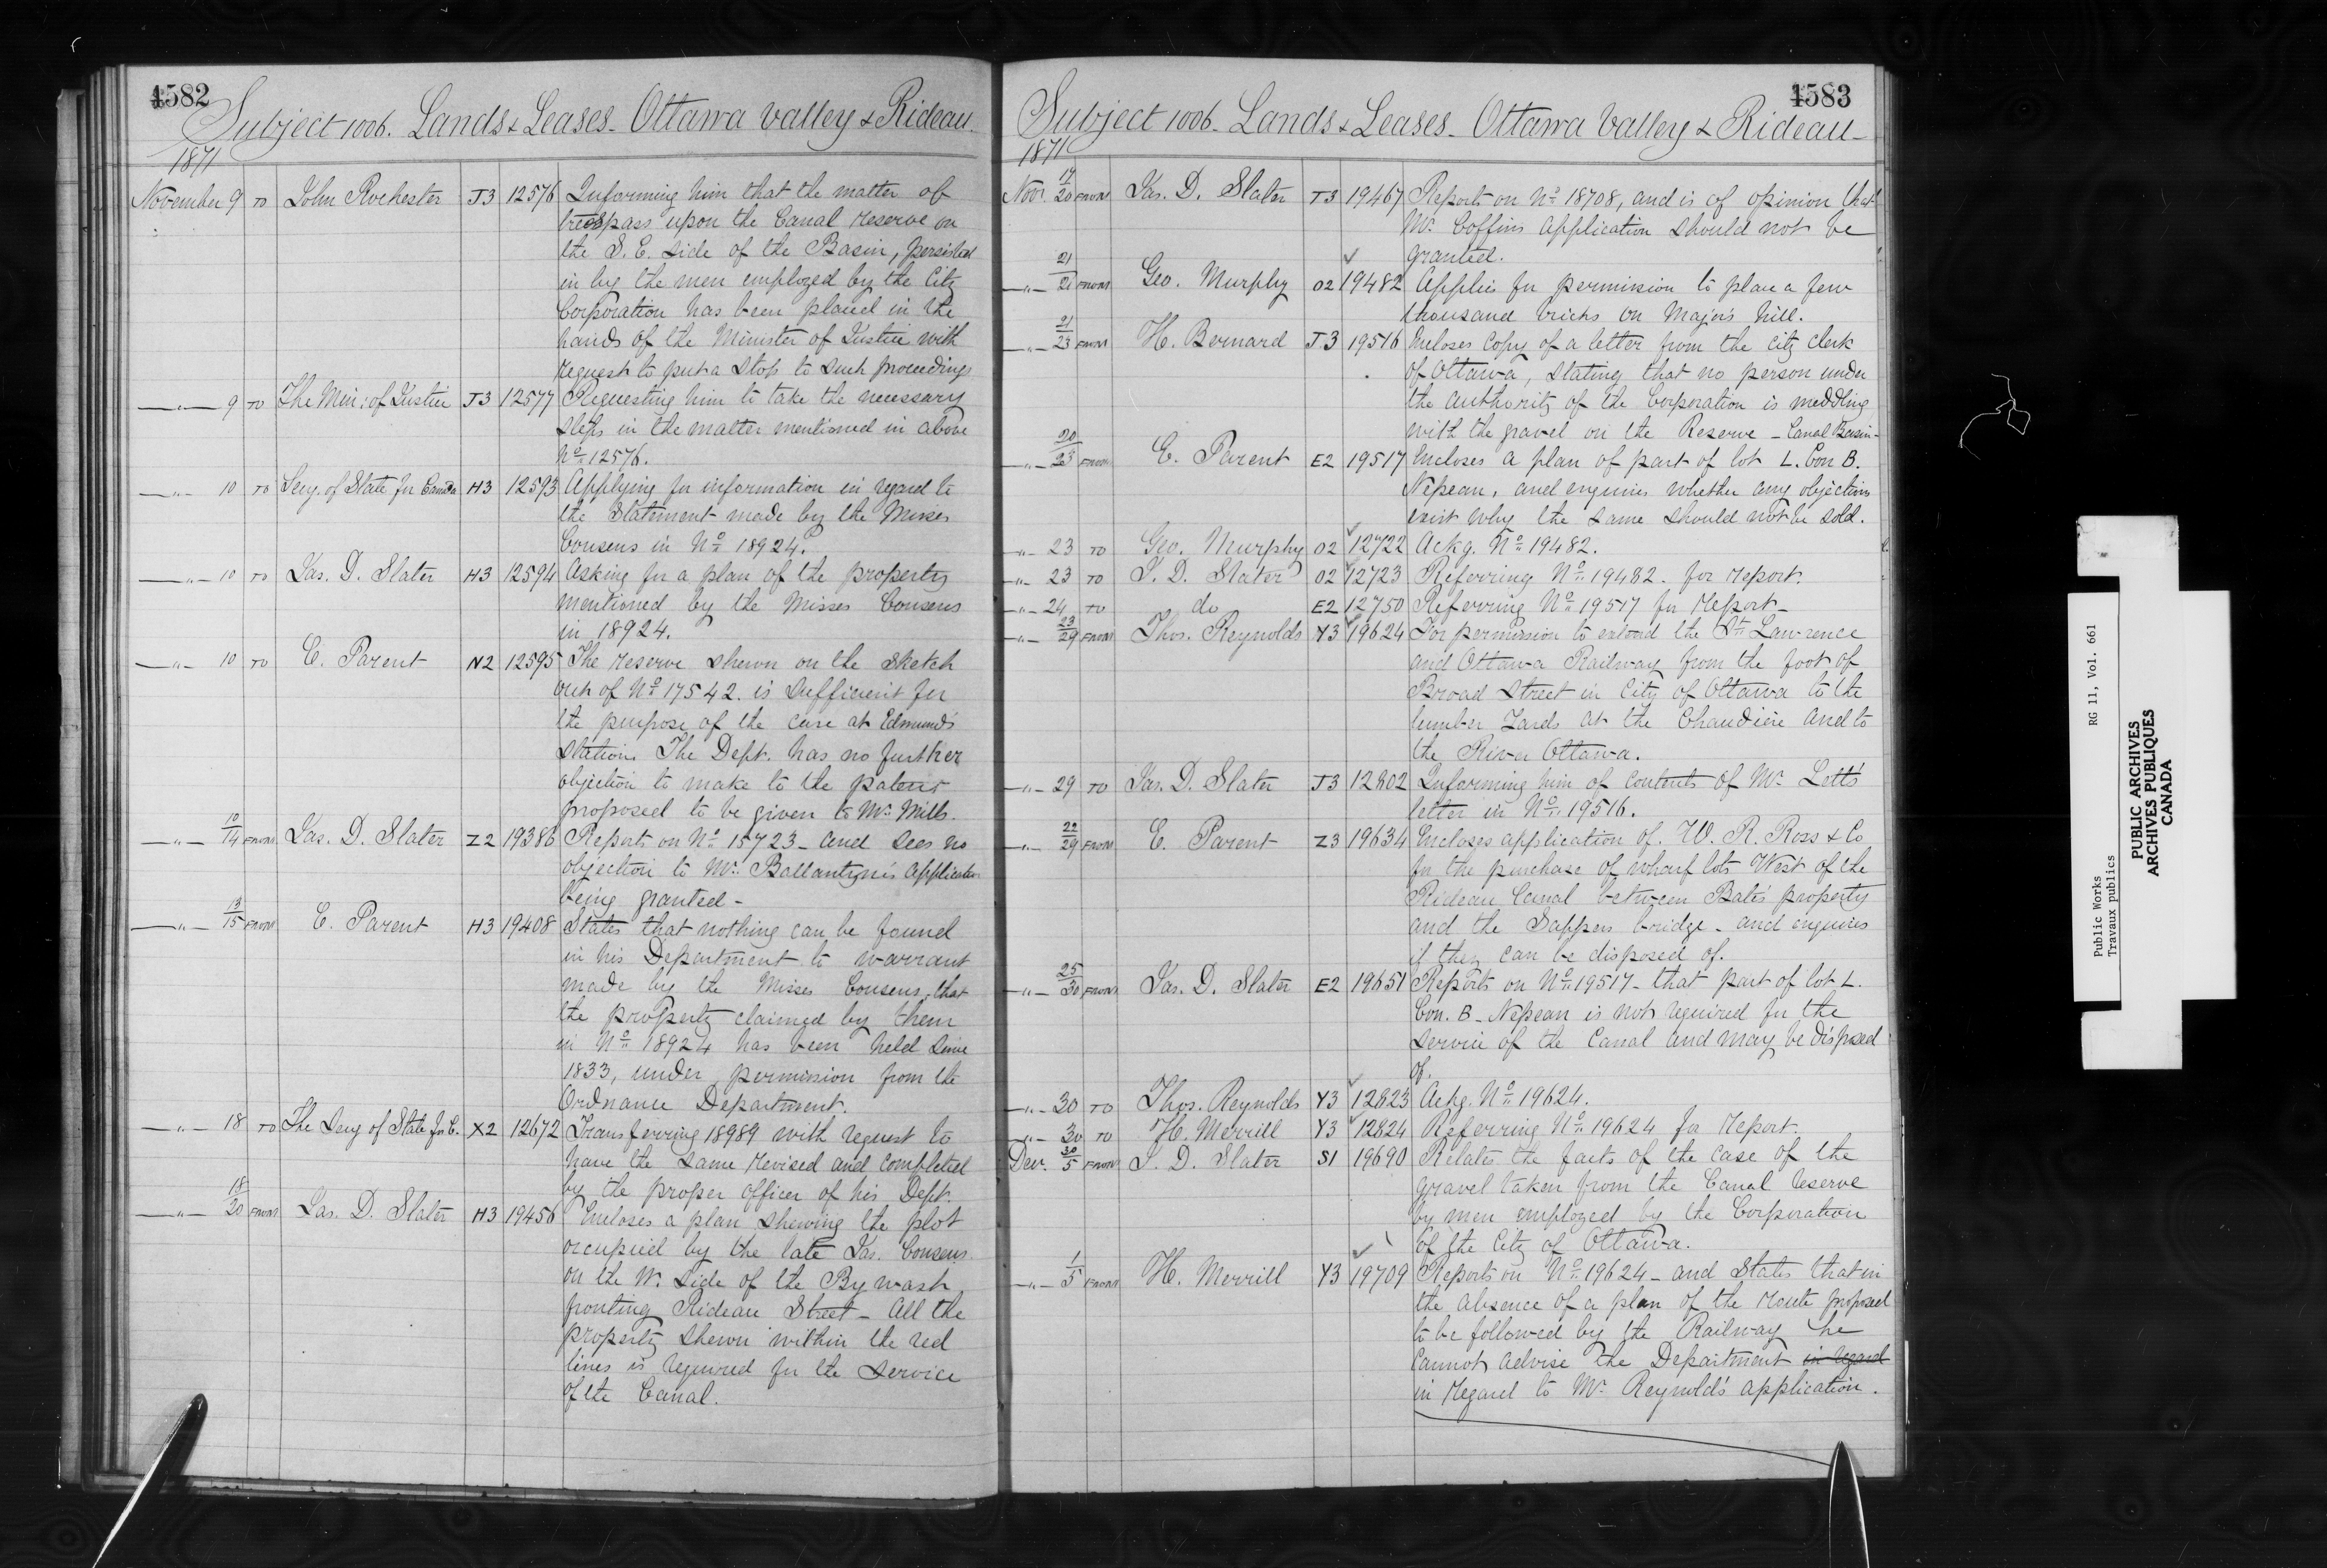 4582
Subject 1006. Lands & Leases - Ottawa Valley & Rideau
1871
November 9 TO John Rochester J3 12576 Informing him that the matter of
trespass upon the Canal reserve on
the S. E. side of the Basin, persisted
in by the men employed by the City
Corporation has been placed in the
hands of the Minister of Justice with
request to put a stop to such proceedings
—"— 9 TO The Min: of Justice J3 12577 Requesting him to take the necessary
steps in the matter mentioned in above
No 12576.
—"— 10 TO Secy. of State for Canada H3 12593 Applying for information in regard to
the statement made by the Misses
Cousens in No 18924.
—"— 10 TO Jas. D. Slater H3 12594 Asking for a plan of the property
mentioned by the Misses Cousens
in 18924.
—"— 10 TO E. Parent N2 12595 The reserve shewn on the sketch
out of No 17542. is sufficient for
the purpose of the case at Edmund's
Station. The Dept. has no further
objection to make to the patent
proposed to be given to Mr. Mills.
—"— 10/14 FROM Jas. D. Slater Z2 19386 Reports on No 15723 - and sees no
objection to Mr. Ballantyne's application
being granted -
—"— 13/15 FROM E. Parent H3 19408 States that nothing can be found
in his Department to warrant
made by the Misses Cousens, that
the property claimed by them
in No 18924 has been held since
1833, under permission from the
Ordnance Department.
—"— 18 TO The Secy of State for C. X2 12672 Transferring 18989 with request to
have the same revised and completed
by the proper officer of his Dept.
—"— 18/20 FROM Jas. D. Slater H3 19456 Encloses a plan shewing the plot
occupied by the late Jas. Cousens
on the W. side of the By wash
fronting Rideau Street - All the
property shewn within the red
lines is required for the service
of the Canal.
4583
Subject 1006 - Lands & Leases - Ottawa Valley & Rideau -
1871
Nov. 17/20 FROM Jas. D. Slater J3 19467 Reports on No 18708, and is of opinion that
Mr. Coffin's application should not be
granted.
—"— 21/21 FROM Geo. Murphy O2 19482 Applies for permission to place a few
thousand bricks on Major's hill.
—"— 21/23 FROM H. Bernard J3 19516 Incloses Copy of a letter from the City Clerk
of Ottawa, stating that no person under
the authority of the Corporation is meddling
with the gravel on the Reserve - Canal Basin -
—"— 20/23 FROM E. Parent E2 19517 Encloses a plan of part of lot L. Con B.
Nepean, and enquires whether any objections
exist why the same should not be sold.
—"— 23 TO Geo. Murphy O2 12722 Ackg. No 19482.
—"— 23 TO J. D. Slater O2 12723 Referring No 19482 - for report.
—"— 24 TO do E2 12750 Referring No 19517 for report -
—"— 23/29 FROM Thos. Reynolds Y3 19624 For permission to extend the St Lawrence
and Ottawa Railway from the foot of
Broad Street in City of Ottawa to the
lumber Yards at the Chaudière and to
the River Ottawa.
—"— 29 TO Jas. D. Slater J3 12802 Informing him of contents of Mr. Lett's
letter in No 19516.
—"— 22/29 FROM E. Parent Z3 19634 Encloses application of W. R. Ross & Co
for the purchase of wharf lots West of the
Rideau Canal between Bate's property
and the Sappers bridge - and enquires
if they can be disposed of.
—"— 25/30 FROM Jas. D. Slater E2 19651 Reports on No 19517 - that part of lot L.
Con. B - Nepean is not required for the
service of the Canal and may be disposed
of.
—"— 30 TO Thos. Reynolds Y3 12823 Ackg. No 19624.
—"— 30 TO H. Merrill Y3 12824 Referring No 19624 for report.
Dec. 30/5 FROM J. D. Slater S1 19690 Relates the facts of the case of the
gravel taken from the Canal reserve
by men employed by the Corporation
of the City of Ottawa.
—"— 1/5 FROM H. Merrill Y3 19709 Reports on No 19624 - and States that in
the absence of a plan of the route proposed
to be followed by the Railway he
cannot advise the Department in regard
in regard to Mr. Reynold's application.
Public Works RG 11, Vol. 661
Travaux publics
PUBLIC ARCHIVES
ARCHIVES PUBLIQUES
CANADA